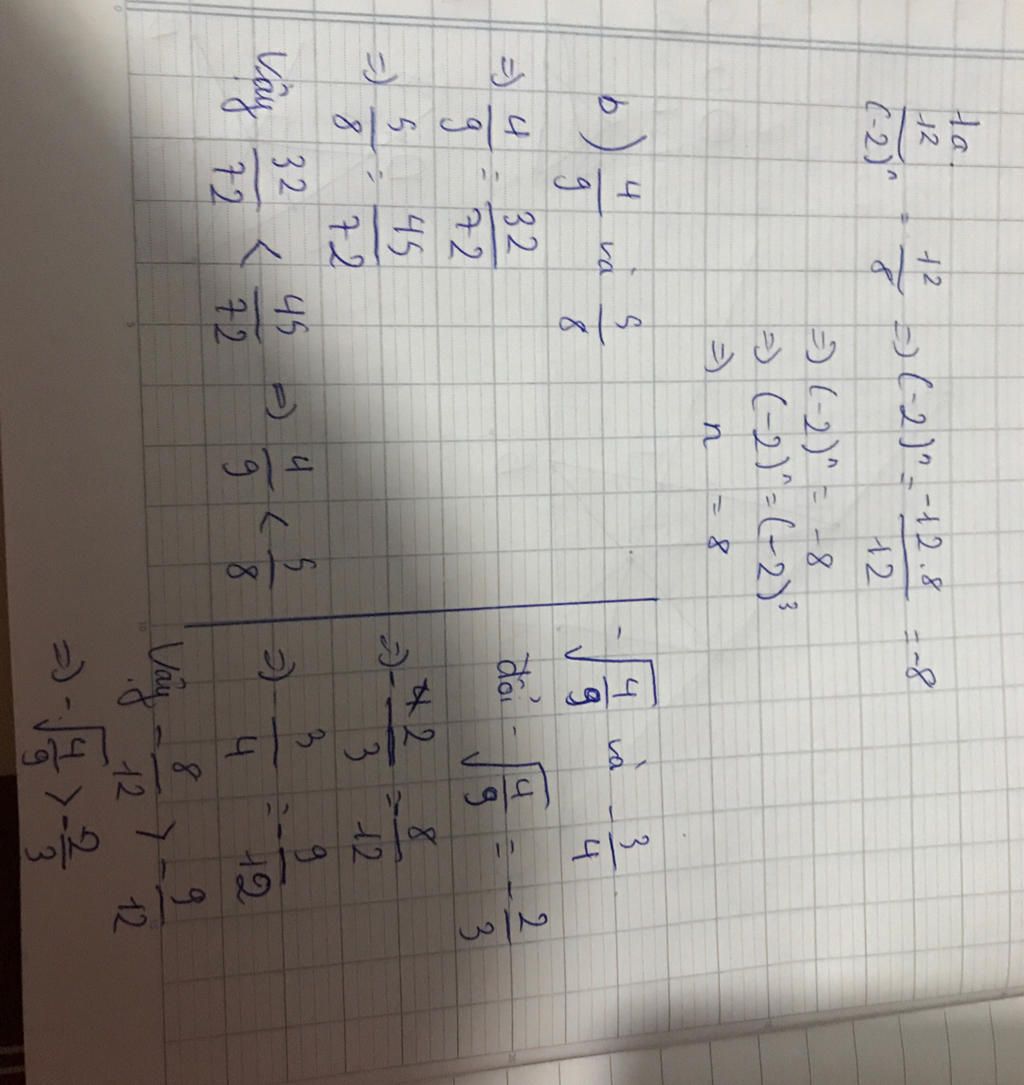 1a.
12/(-2)ⁿ = 12/8 => (-2)ⁿ = -12.8/12 = -8
=> (-2)ⁿ = -8
=> (-2)ⁿ = (-2)³
=> n = 8
b) 4/9 và 5/8
=> 4/9 = 32/72
=> 5/8 = 45/72
Vậy 32/72 < 45/72 => 4/9 < 5/8
-√(4/9) và -3/4
đổi -√(4/9) = -2/3
=> -2/3 = -8/12
=> -3/4 = -9/12
Vậy -8/12 > -9/12
=> -√(4/9) > -2/3